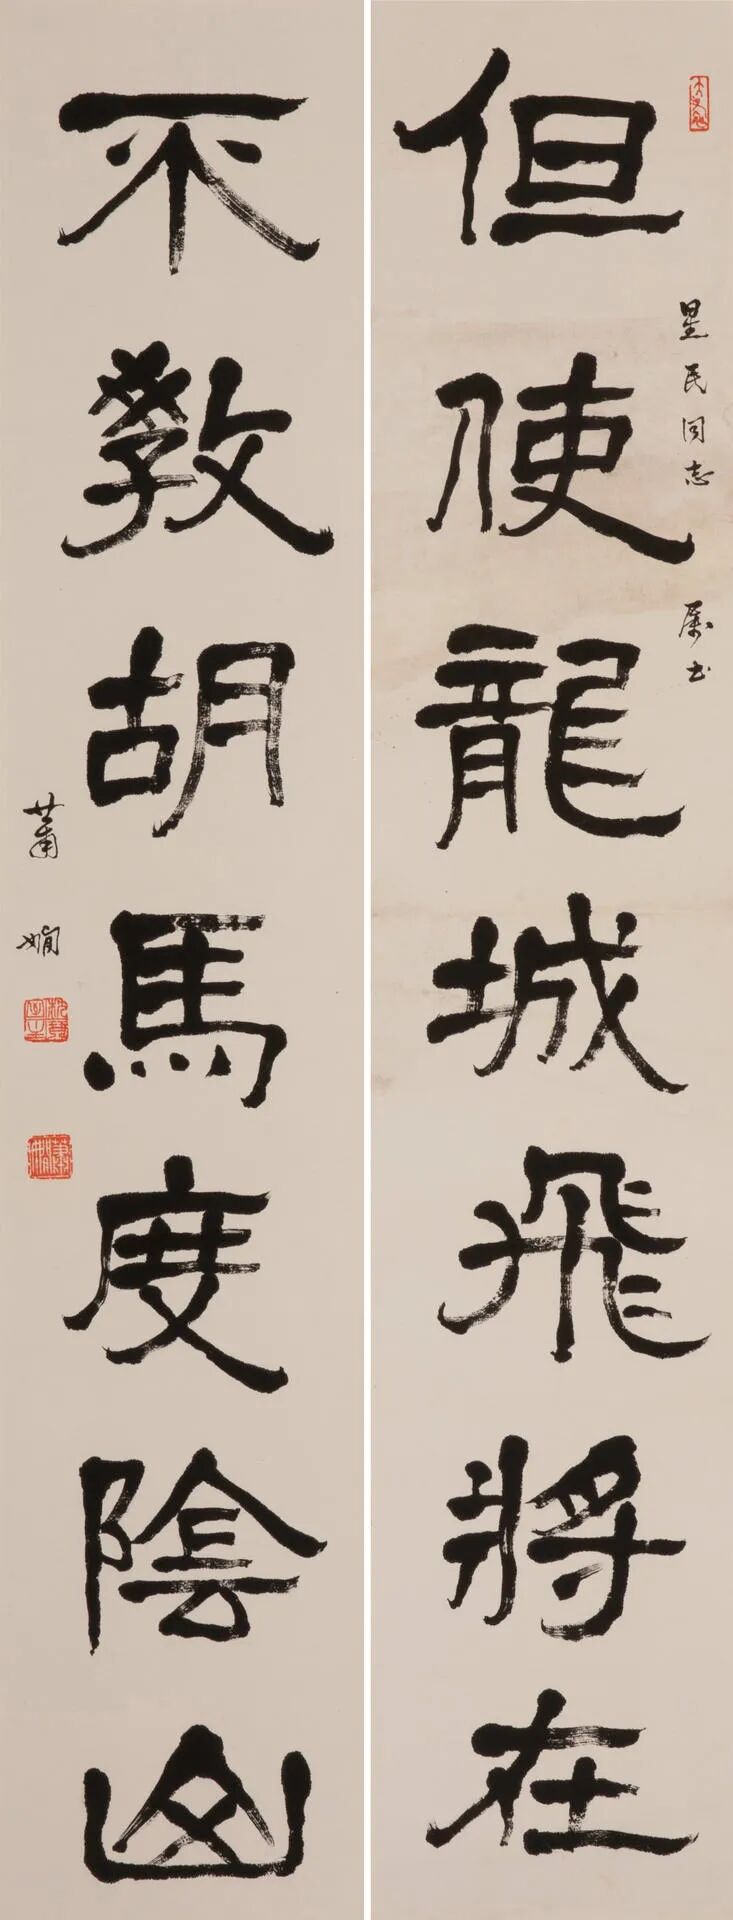 但使龍城飛將在
星民同志 属书
不教胡馬度陰山
蕭嫻
蕭嫻